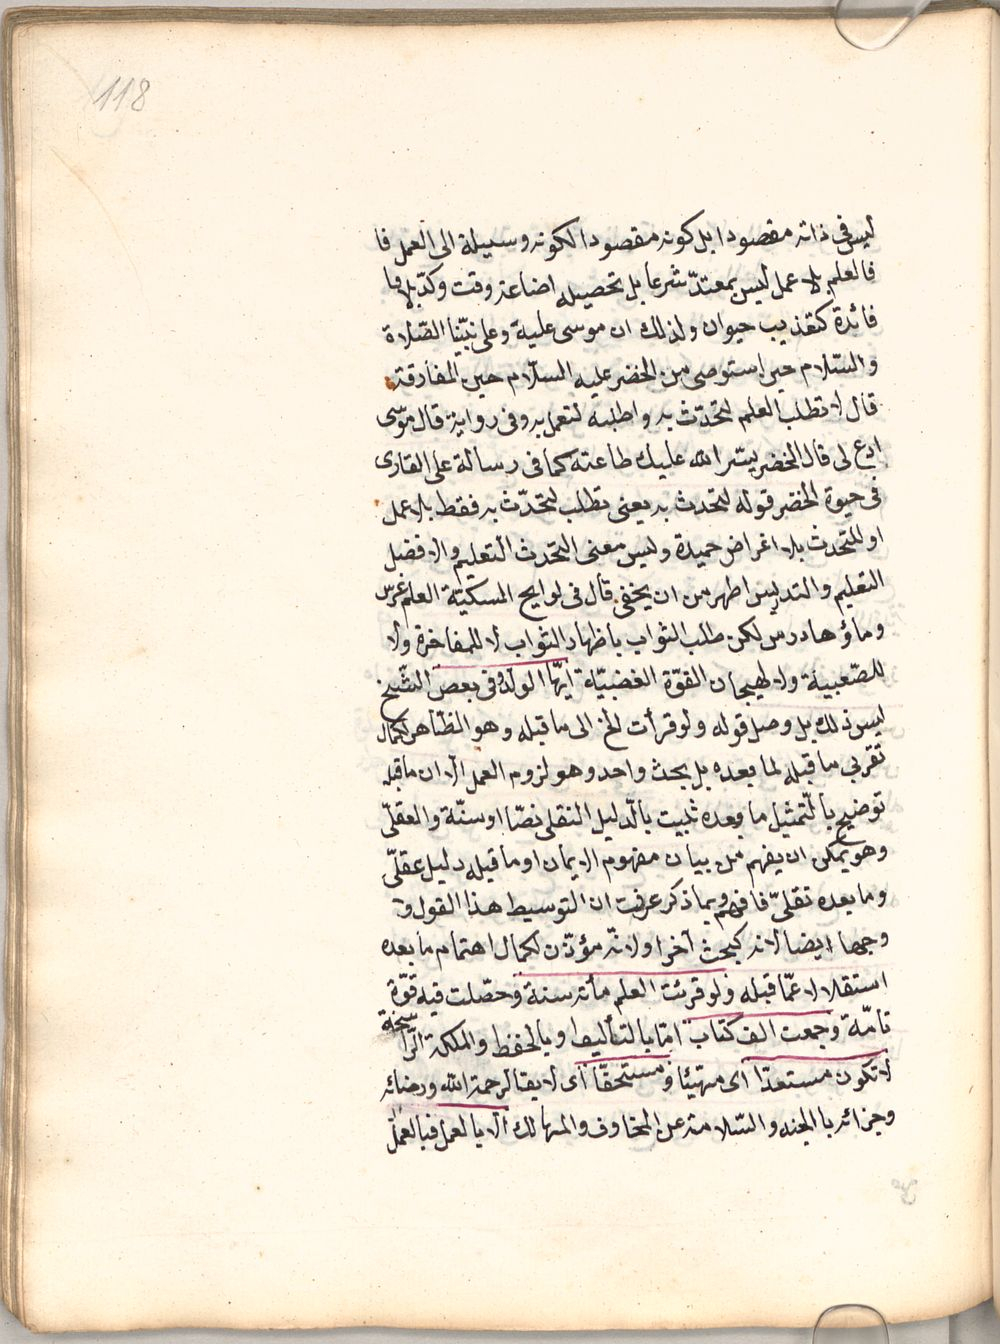 118
ليس فى ذاته مقصودا بل كونه مقصودا لكونه وسيلة الى العمل فا
فالعلم بلا عمل ليس بمعتدّ شرعا بل تحصيله اضاعة وقت وكدّ بلا فا
فائدة كتعذيب حيوان ولذلك ان موسى عليه وعلى نبيّنا الصّلاة
والسّلام حين استوصى من الخضر عليه السلام حين المفارقة
قال لا تطلب العلم لتحدّث به واطلبه لتعمل به وفى رواية قال موسى
ادع لى قال الخضر يسّر الله عليك طاعته كما فى رسالة على القارى
فى حيوة الخضر قوله لتحدث به يعنى تطلب لتحدّث به فقط بلا عمل
او للتحدث بلا اغراض حميدة وليس معنى التحدث التعليم والا فضل
التعليم والتدريس اظهر من ان يخفى قال فى لوايح المسكيّة العلم غرس
وماؤها درس لكن طلب الثواب باظهار الثواب لا للمفاخرة ولا
للصّعبية ولا لهيجان القوّة الغضبيّة ايّها الولد فى بعض النسّخ
ليس ذلك بل وصل قوله ولو قرأت الخ الى ما قبله وهو الظّاهر لكمال
تقربى ما قبله لما بعده بل بحث واحد وهو لزوم العمل الا ان ما قبله
توضيح بالتّمثيل ما وبعده تثبيت بالدليل النقلى نصّا او سنّة والعقلّى
وهو يمكن ان يفهم من بيان مفهوم الايمان او ما قبله دليل عقلّى
وما بعده نقلىّ فافهم وبما ذكر عرفت ان التوسيط هذا القول وّ
وجها ايضا لانه كبحث آخر اولانه مؤذّن لكمال اهتمام ما بعده
استقلالا عمّا قبله ولو قرئت العلم مأة سنة وحصّلت فيه قوّة
تامّة وجمعت الف كتاب امّا بالتأليف او بالحفظ والملكة الرّاسخة
لا تكون مستعدّا اى مهتيئا ومستحقّا اى لايقا لرحمة الله ورضائه
وجزائه بالجنه والسّلامة عن المخاوف والمهالك الا بالعمل فبالعمل